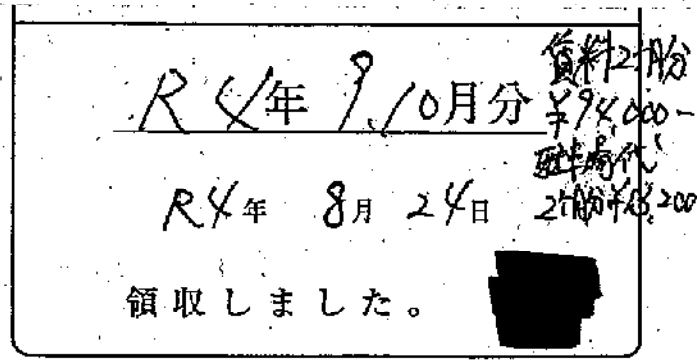 R4年 9.10月分
賃料2ヶ月分
¥94,000-
駐車場代
2ヶ月分
R4年 8月 24日
領収しました。